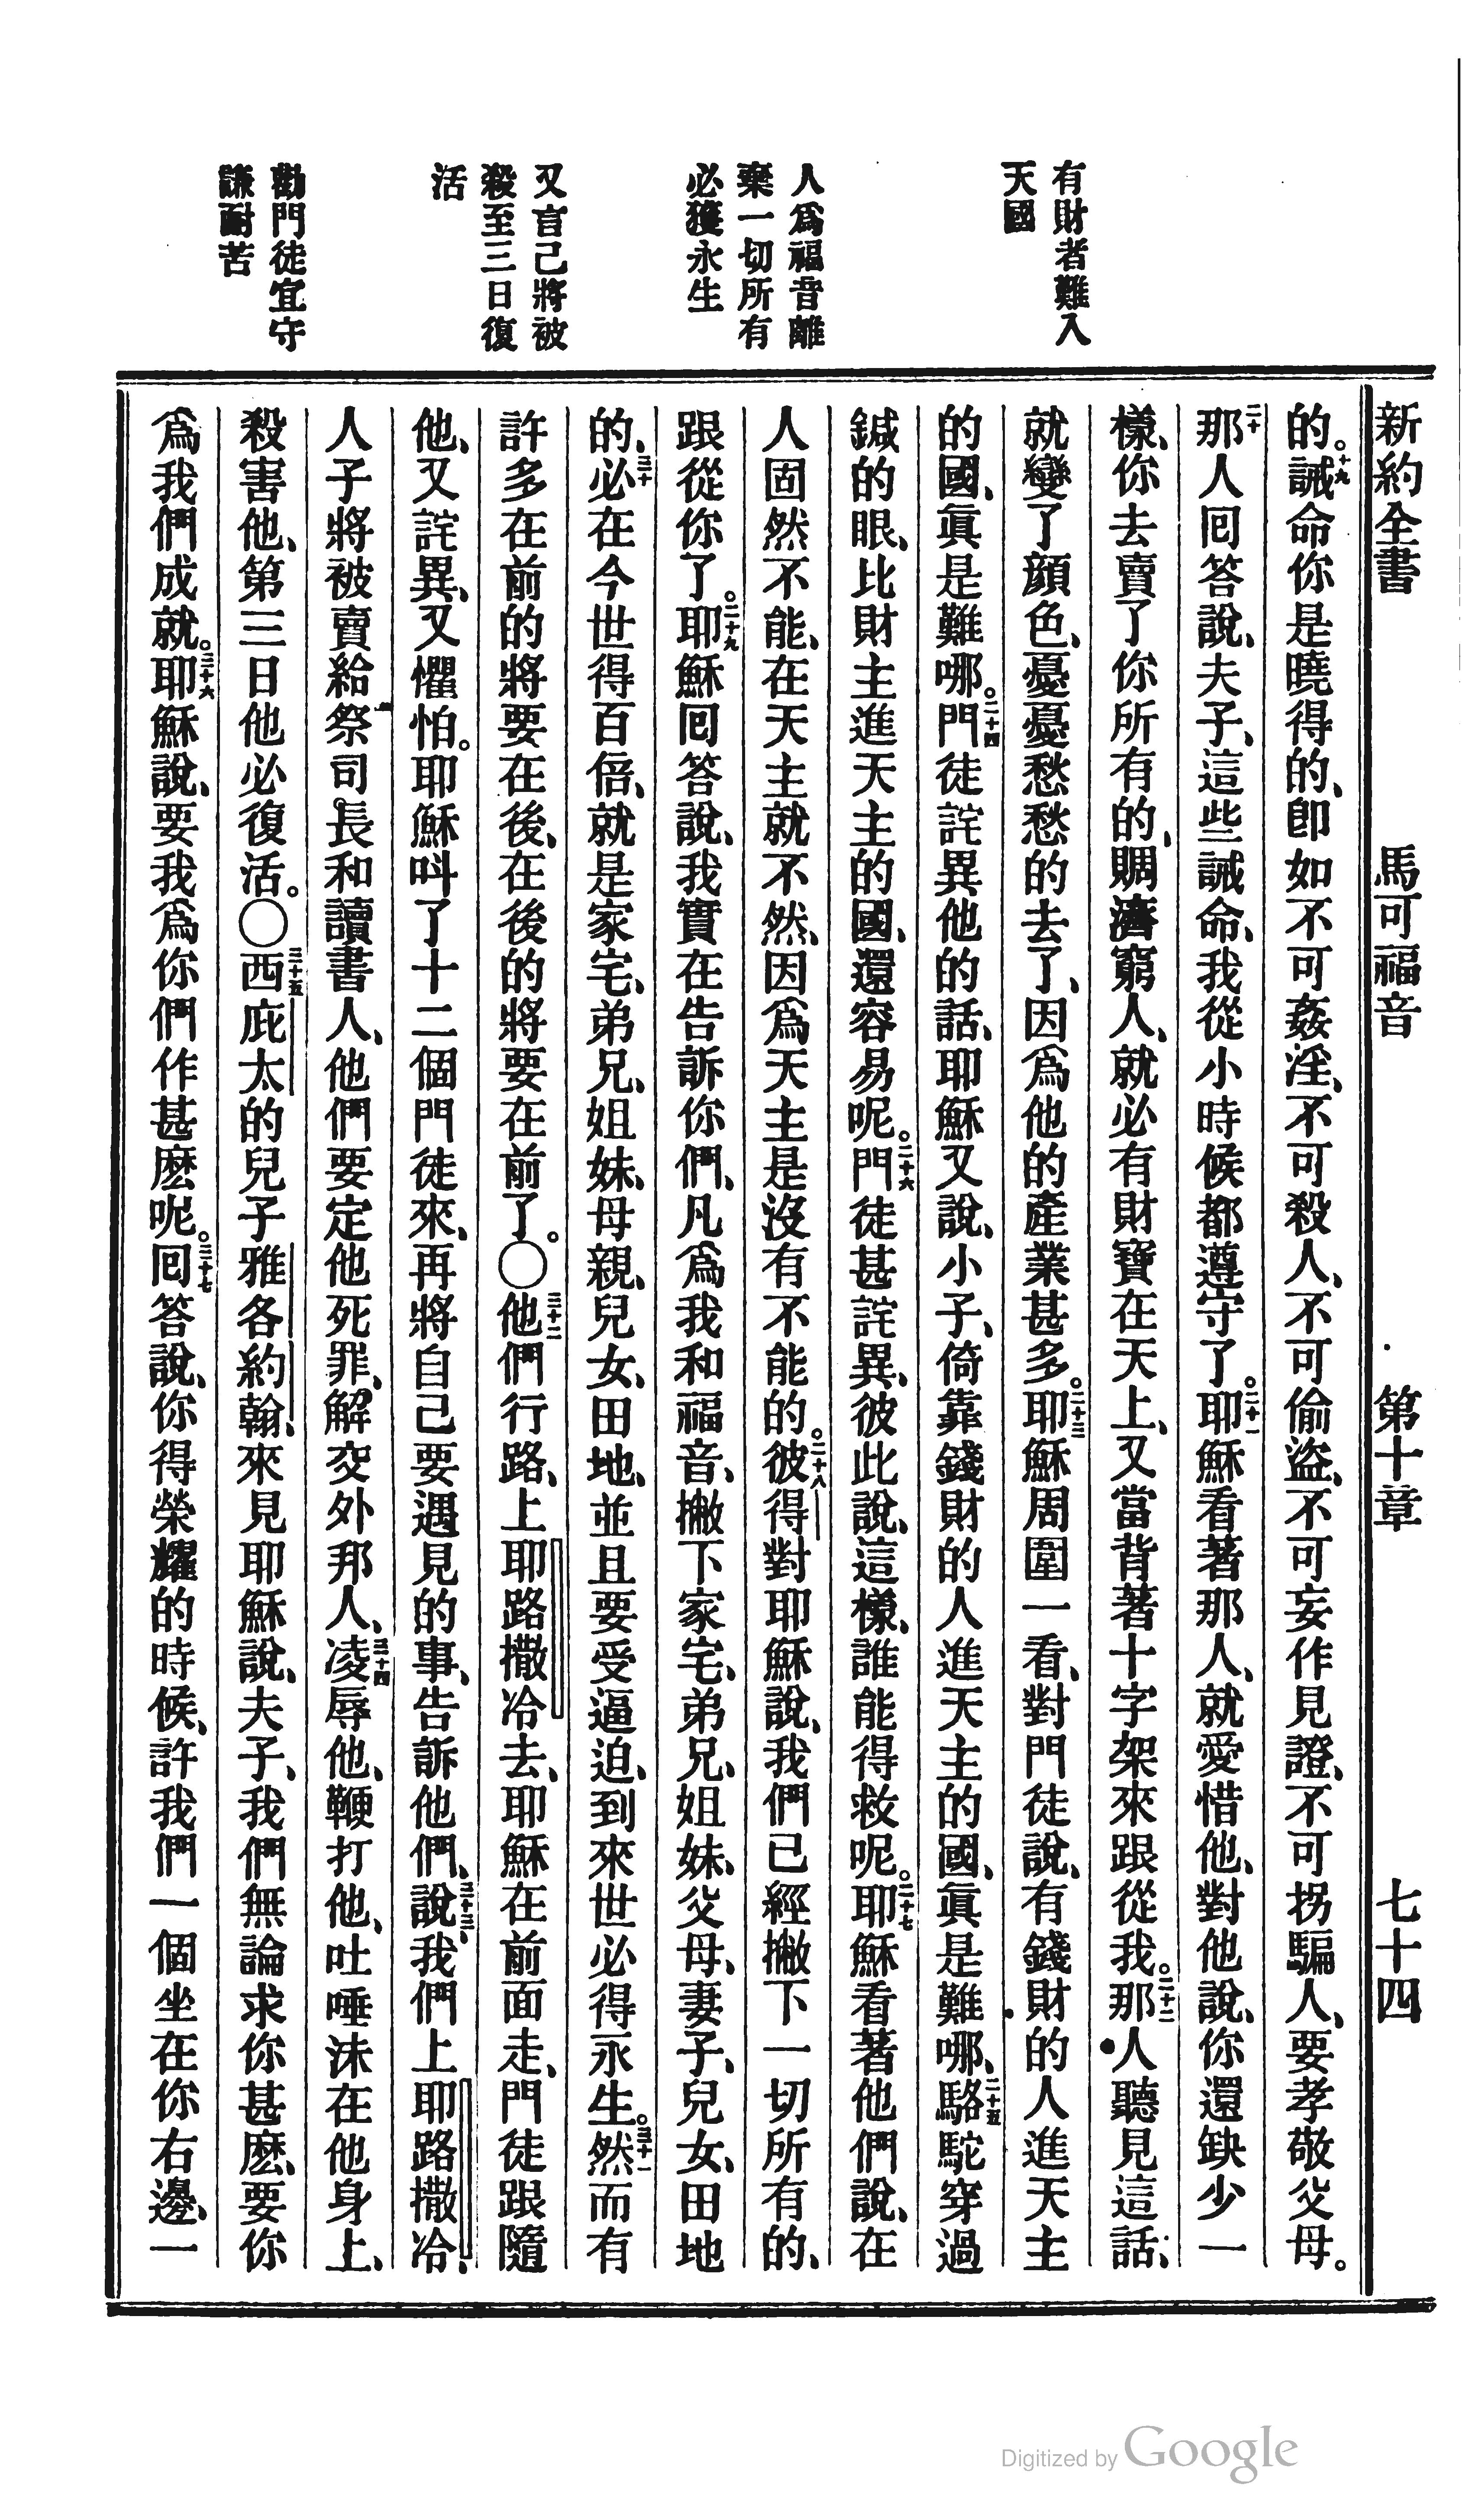 新約全書 馬可福音 第十章 七十四
有財者難入
天國
人爲福音離
棄一切所有
必獲永生
又言己將被
殺至三日復
活
勸門徒宜守
謙耐苦
的。十九誡命你是曉得的、卽如不可姦淫、不可殺人、不可偷盜、不可妄作見證、不可拐騙人、要孝敬父母。
二十那人囘答說、夫子、這些誡命、我從小時候都遵守了。二十一耶穌看著那人、就愛惜他、對他說、你還缺少一
樣、你去賣了你所有的、賙濟窮人、就必有財寶在天上、又當背著十字架來跟從我。二十二那人聽見這話、
就變了顔色、憂憂愁愁的去了、因爲他的產業甚多。二十三耶穌周圍一看、對門徒說、有錢財的人進天主
的國、眞是難哪。二十四門徒詫異他的話、耶穌又說、小子、倚靠錢財的人進天主的國、眞是難哪、二十五駱駝穿過
鍼的眼、比財主進天主的國、還容易呢。二十六門徒甚詫異、彼此說、這樣、誰能得救呢。二十七耶穌看著他們說、在
人固然不能、在天主就不然、因爲天主是沒有不能的。二十八彼得對耶穌說、我們已經撇下一切所有的、
跟從你了。二十九耶穌囘答說、我實在告訴你們、凡爲我和福音、撇下家宅、弟兄、姐妹、父母、妻子、兒女、田地
的、三十必在今世得百倍、就是家宅、弟兄、姐妹、母親、兒女、田地、並且要受逼迫、到來世必得永生。三十一然而有
許多在前的將要在後、在後的將要在前了。〇三十二他們行路、上耶路撒冷去、耶穌在前面走、門徒跟隨
他、又詫異、又懼怕。耶穌呌了十二個門徒來、再將自己要遇見的事、告訴他們、三十三說、我們上耶路撒冷、
人子將被賣給祭司長和讀書人、他們要定他死罪、解交外邦人、三十四凌辱他、鞭打他、吐唾沫在他身上、
殺害他、第三日他必復活。〇三十五西庇太的兒子雅各約翰、來見耶穌說、夫子、我們無論求你甚麼、要你
爲我們成就。三十六耶穌說、要我爲你們作甚麼呢。三十七囘答說、你得榮耀的時候、許我們一個坐在你右邊、一
Digitized by Google